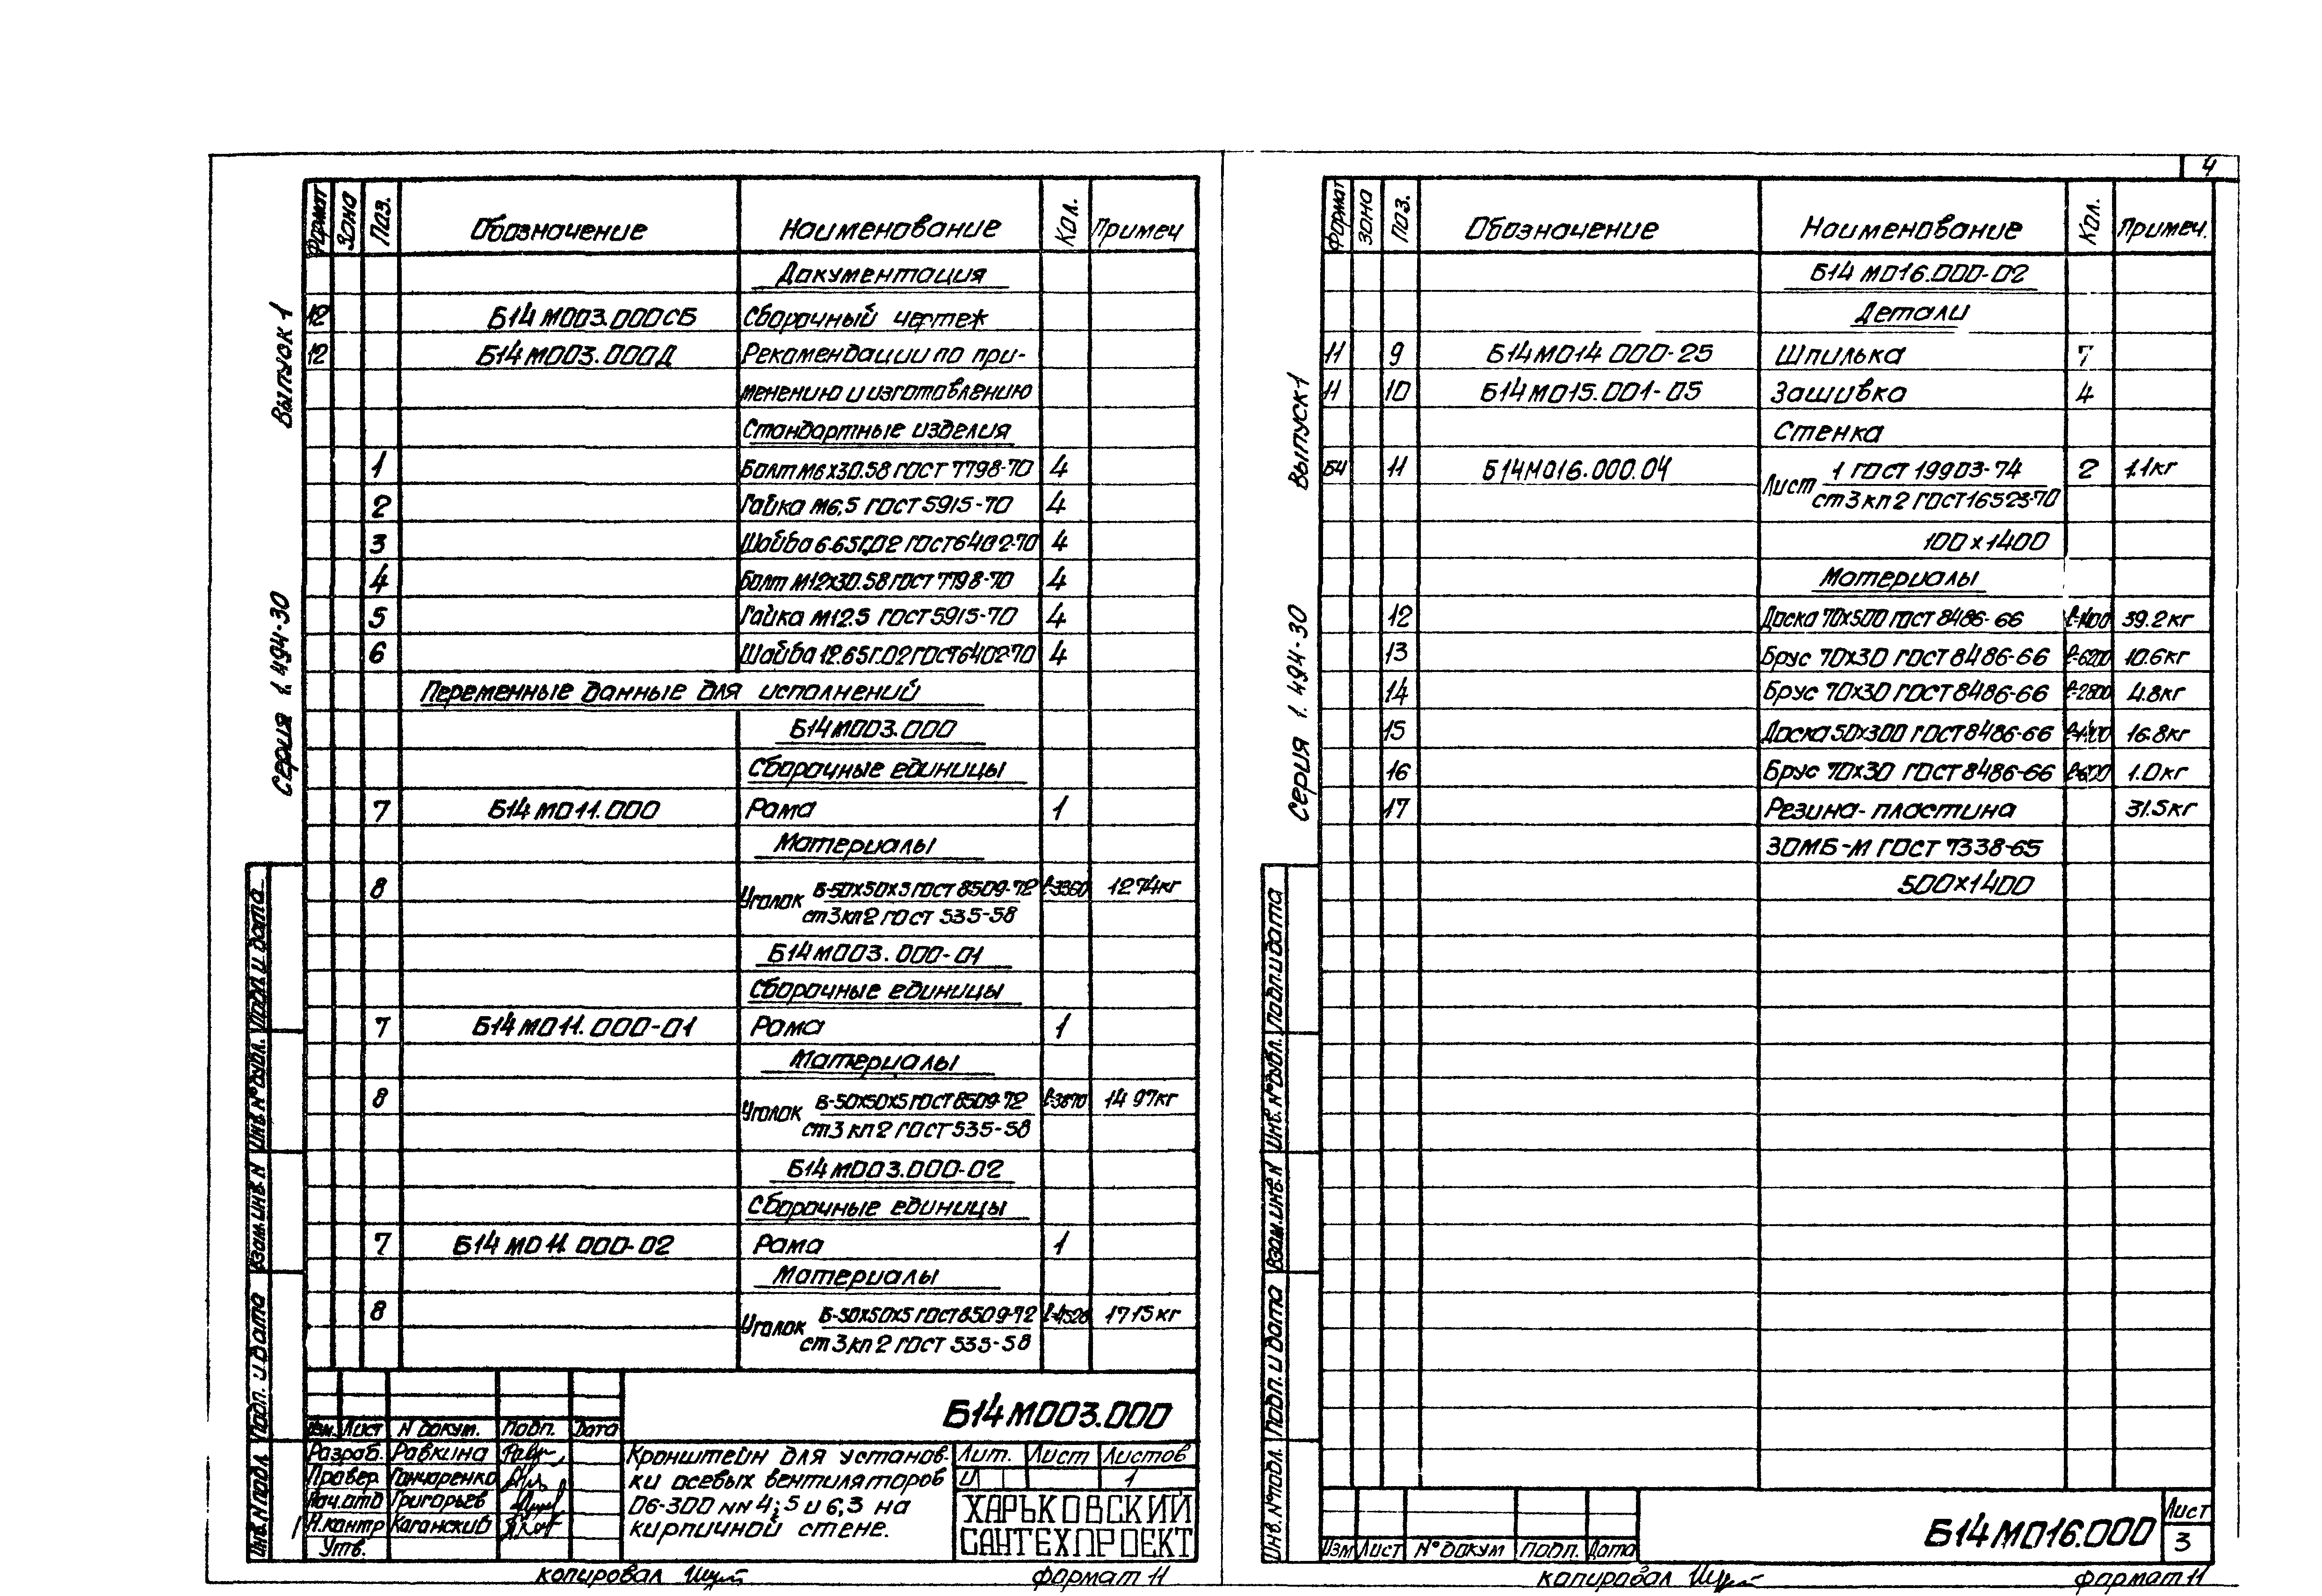 4
Выпуск 1
Серия 1.494-30
Формат Зона Поз. Обозначение Наименование Кол. Примеч
Документация
12 Б14М003.000СБ Сборочный чертеж
12 Б14М003.000Д Рекомендации по при-
менению и изготовлению
Стандартные изделия
1 Болт М6х30.58 ГОСТ 7798-70 4
2 Гайка М6,5 ГОСТ 5915-70 4
3 Шайба 6.65Г.02 ГОСТ 6402-70 4
4 Болт М12х30.58 ГОСТ 7798-70 4
5 Гайка М12.5 ГОСТ 5915-70 4
6 Шайба 12.65Г.02 ГОСТ 6402-70 4
Переменные данные для исполнений
Б14М003.000
Сборочные единицы
7 Б14М011.000 Рама 1
Материалы
8 Уголок Б-50х50х5 ГОСТ 8509-72 ℓ-3360 12.74кг
ст3кп2 ГОСТ 535-58
Б14М003.000-01
Сборочные единицы
7 Б14М011.000-01 Рама 1
Материалы
8 Уголок Б-50х50х5 ГОСТ 8509-72 ℓ-3870 14.97кг
ст3кп2 ГОСТ 535-58
Б14М003.000-02
Сборочные единицы
7 Б14М011.000-02 Рама 1
Материалы
8 Уголок Б-50х50х5 ГОСТ 8509-72 ℓ-4520 17.15кг
ст3кп2 ГОСТ 535-58
Инв.N подл. Подп. и дата Взам.инв.N Инв.N°дубл. Подп. и дата
Б14М003.000
Изм. Лист N докум. Подп. Дата
Разраб. Равкина
Провер. Гончаренко
Нач.отд Григорьев
Н.контр Каганский
Утв.
Кронштейн для установ-
ки осевых вентиляторов
06-300 NN 4; 5 и 6,3 на
кирпичной стене.
Лит. Лист Листов
И 1
ХАРЬКОВСКИЙ
САНТЕХПРОЕКТ
копировал
формат 11
Выпуск 1
Серия 1.494-30
Формат Зона Поз. Обозначение Наименование Кол. Примеч.
Б14М016.000-02
Детали
11 9 Б14М014.000-25 Шпилька 7
11 10 Б14М015.001-05 Зашивка 4
Стенка
БЧ 11 Б14М016.000.04 Лист 1 ГОСТ 19903-74 2 1.1кг
ст3кп2 ГОСТ 16523-70
100х1400
Материалы
12 Доска 70х500 ГОСТ 8486-66 ℓ-1400 39.2кг
13 Брус 70х30 ГОСТ 8486-66 ℓ-6200 10.6кг
14 Брус 70х30 ГОСТ 8486-66 ℓ-2800 4.8кг
15 Доска 50х300 ГОСТ 8486-66 ℓ-1400 16.8кг
16 Брус 70х30 ГОСТ 8486-66 1.0кг
17 Резина-пластина 31.5кг
30МБ-М ГОСТ 7338-65
500х1400
Инв.N°подл. Подп. и дата Взам.инв.N Инв.N°дубл. Подп.и дата
Изм Лист N°докум Подп. Дата
Б14М016.000
Лист
3
копировал
формат 11